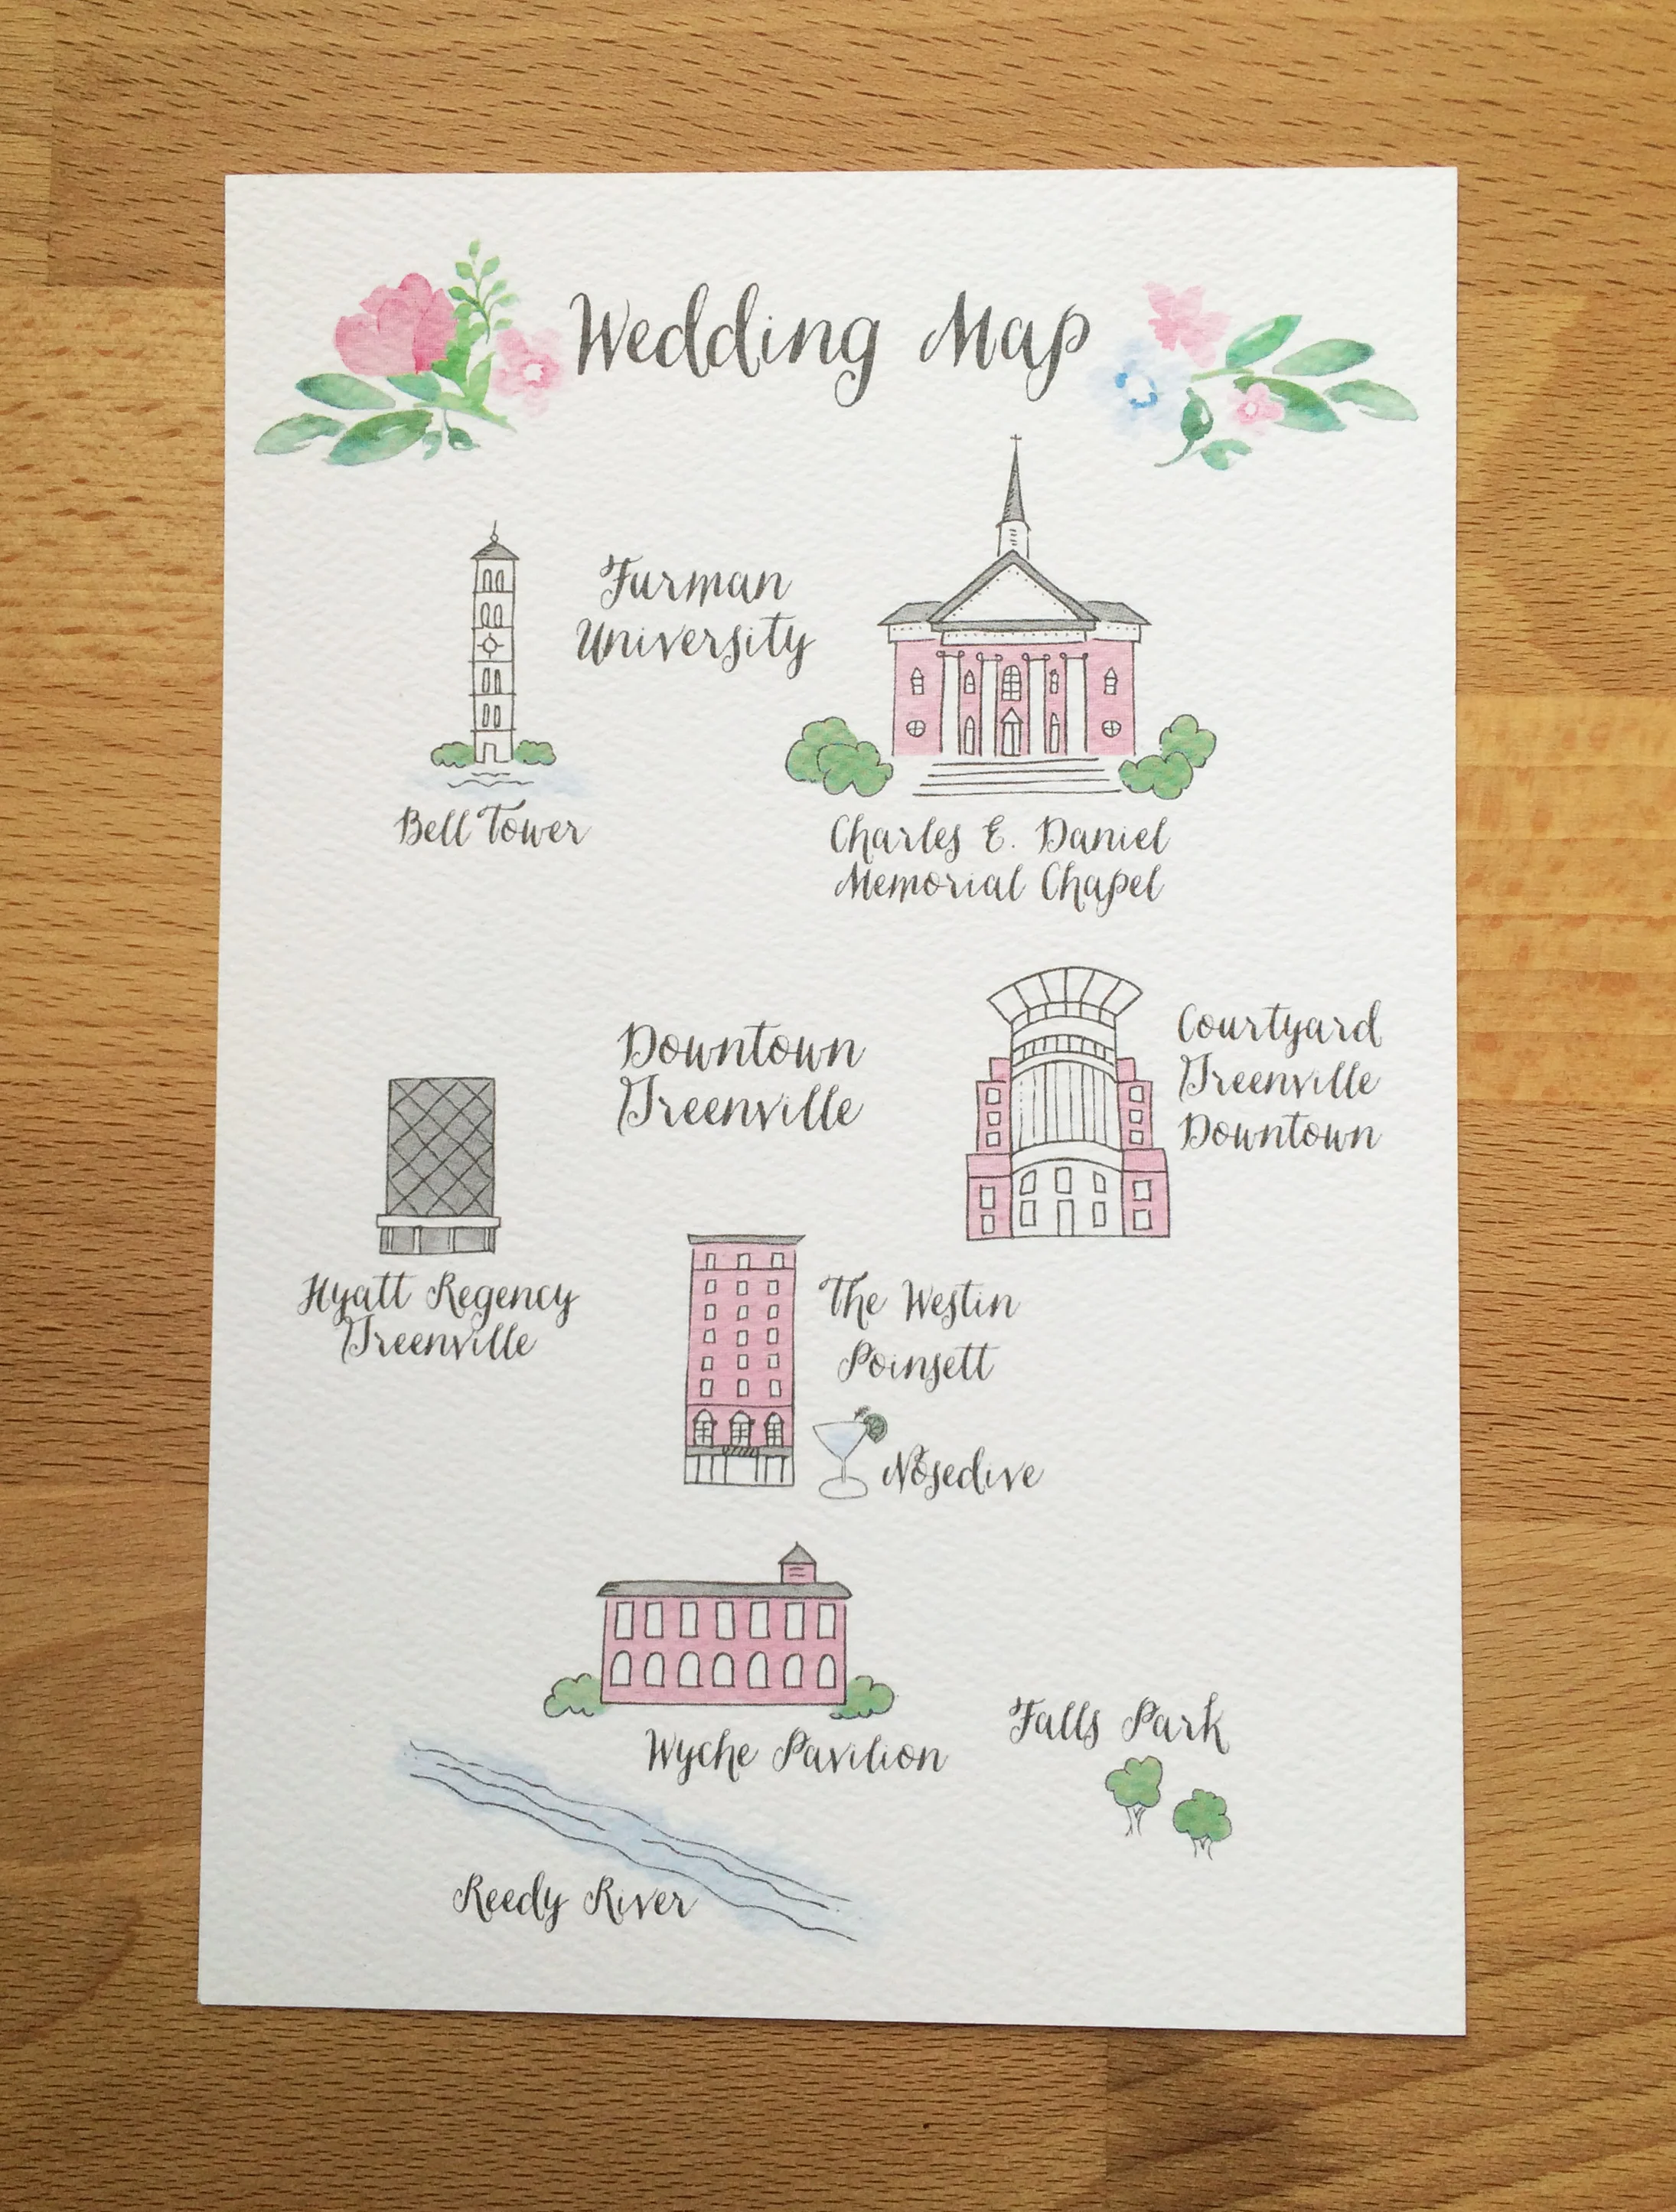 Wedding Map
Furman
University
Bell Tower
Charles E. Daniel
Memorial Chapel
Downtown
Greenville
Courtyard
Greenville
Downtown
Hyatt Regency
Greenville
The Westin
Poinsett
Nosedive
Wyche Pavilion
Falls Park
Reedy River